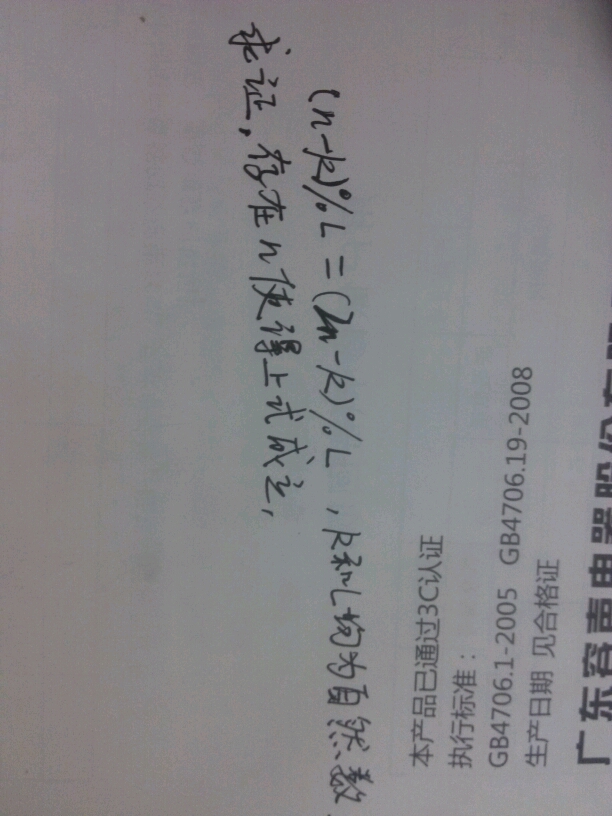 (n-k)%L=(2n-k)%L,k和L均为自然数
求证,存在n使得上式成立,
本产品已通过3C认证
执行标准:
GB4706.1-2005 GB4706.19-2008
生产日期 见合格证
广东容声电器股份有限